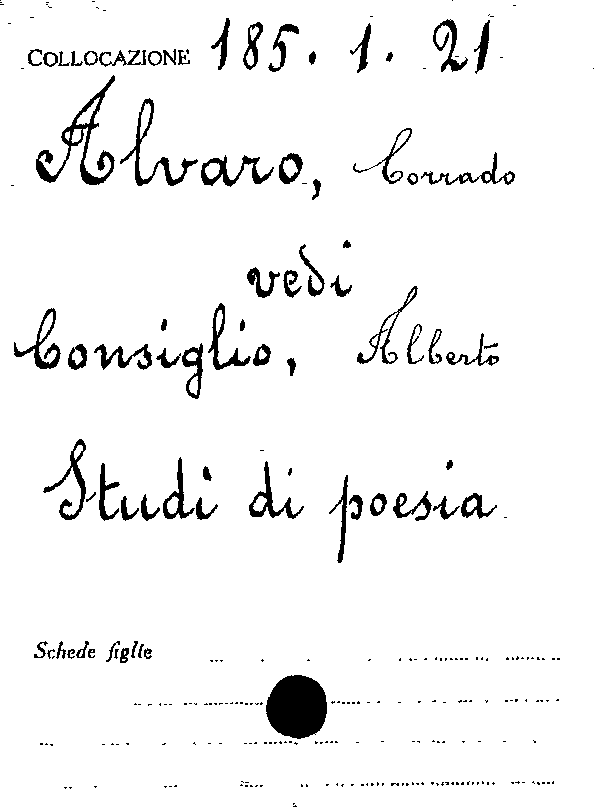 COLLOCAZIONE 185. 1. 21
Alvaro, Corrado
vedi
Consiglio, Alberto
Studi di poesia
Schede figlie